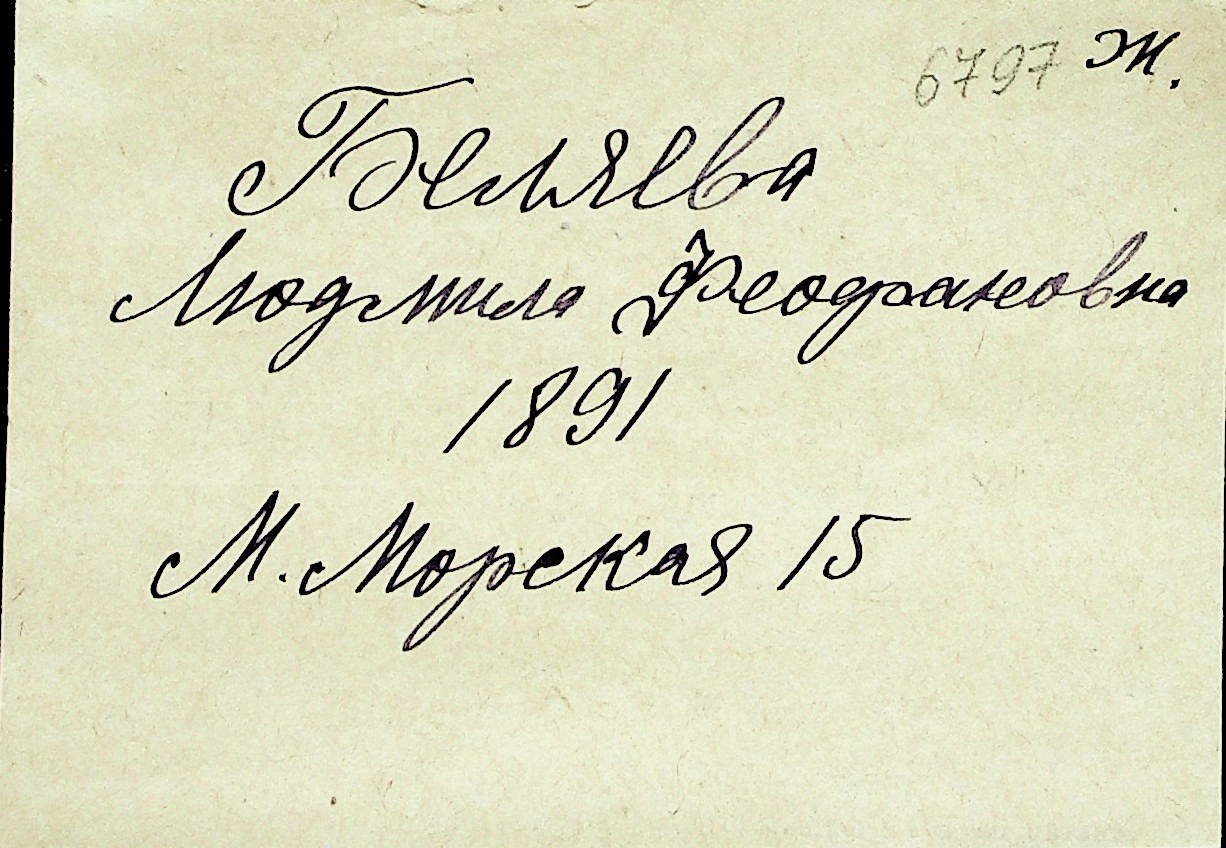 6797 ж.
Беляева
Людмила Феофановна
1891
М. Морская 15